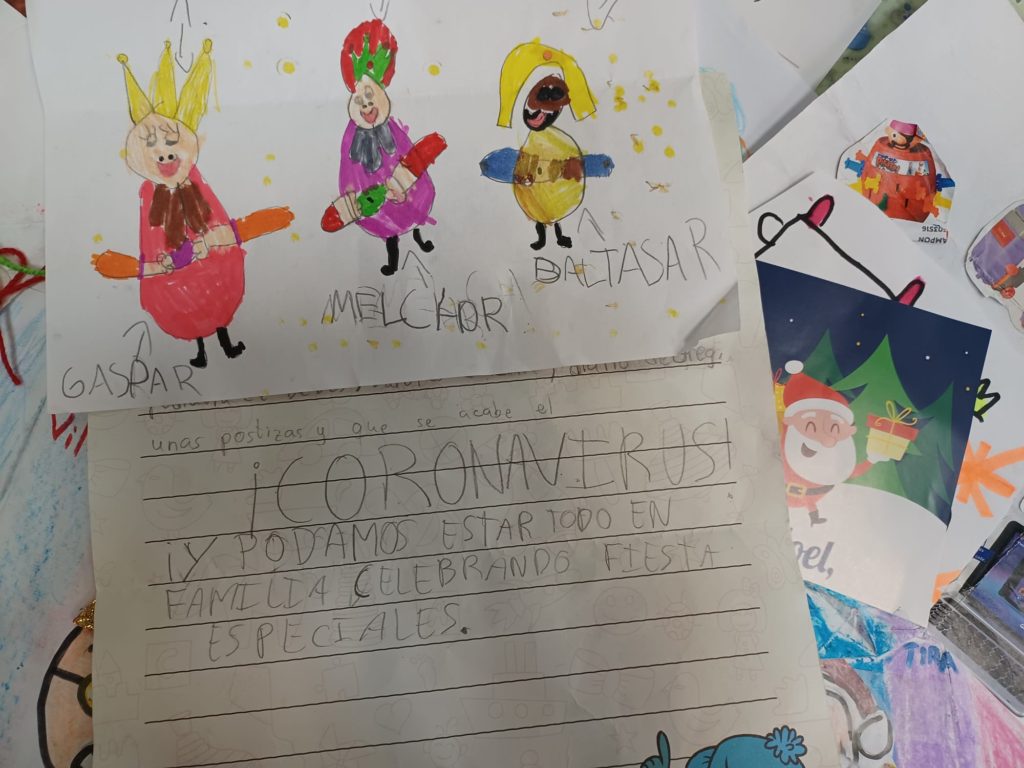 GASPAR
MELCHOR
BALTASAR
unas postizas y que se acabe el
¡CORONAVIRUS!
¡Y PODAMOS ESTAR TODO EN
FAMILIA CELEBRANDO FIESTA
ESPECIALES.
TIRA